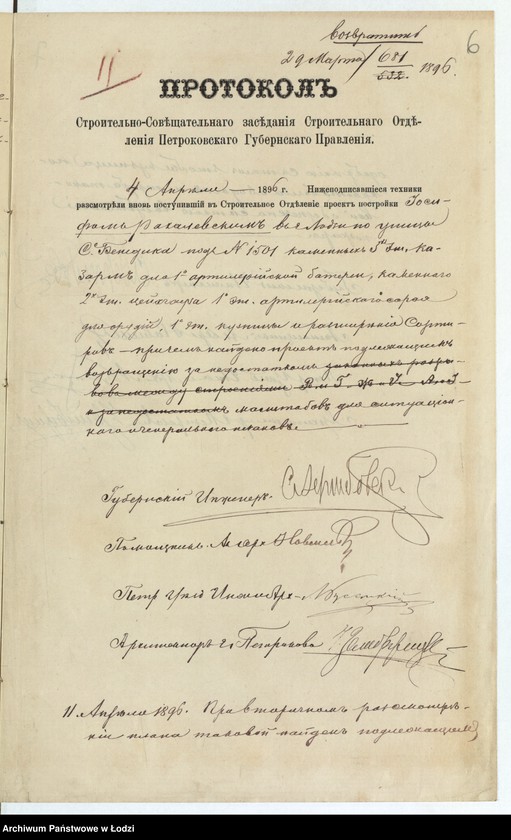 Возвратить
6
II
29 Марта / 681
532. 1896.
ПРОТОКОЛЪ
Строительно-Совѣщательнаго засѣданія Строительнаго Отдѣ-
ленія Петроковскаго Губернскаго Правленія.
4 Апрѣля — 1896 г. Нижеподписавшіеся техники
разсмотрѣли вновь поступившій въ Строительное Отдѣленіе проектъ постройки Іоси-
фомъ въ г. Лодзи по улицѣ
Св. Бенедикта подъ № 1501 каменныхъ эт. ка-
зармъ для 1й артиллерійской батареи, каменнаго
2хъ эт. цейхгауза 1 эт. артиллерійскаго сарая
для орудій, 1 эт. кузницы и расширенія Сорти-
ровъ — причемъ найденъ проектъ подлежащимъ
возвращенію за недостаткомъ
между строеніями
и за недостаткомъ масштабовъ для ситуаціон-
наго и генеральнаго плановъ.
Губернскій Инженеръ
Помощникъ
Петр
Архитекторъ г.
11 Апрѣля 1896. При вторичномъ разсмотрѣ-
ніи плана таковой найденъ подлежащимъ
Archiwum Państwowe w Łodzi